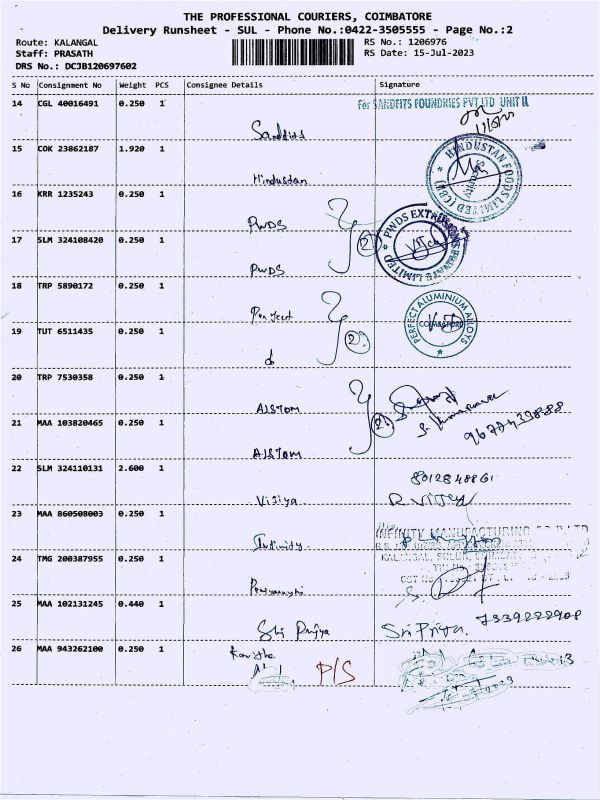 THE PROFESSIONAL COURIERS, COIMBATORE
Delivery Runsheet - SUL - Phone No.:0422-3505555 - Page No.:2
Route: KALANGAL
RS No.: 1206976
Staff: PRASATH
RS Date: 15-Jul-2023
DRS No.: DCJB120697602
S No Consignment No Weight PCS Consignee Details Signature
14 CGL 40016491 0.250 1
For SANDFITS FOUNDRIES PVT LTD UNIT II
15 COK 23862187 1.920 1
Hindustan
HINDUSTAN FOODS LIMITED (CBE)
16 KRR 1235243 0.250 1
PWDS
17 SLM 324108420 0.250 1
PWDS
2
PWDS EXTRUSIONS PRIVATE LIMITED
18 TRP 5890172 0.250 1
Perfect
PERFECT ALUMINIUM ALLOYS
COIMBATORE
19 TUT 6511435 0.250 1
2
20 TRP 7530358 0.250 1
ALSTOM
2
21 MAA 103820465 0.250 1
ALSTOM
22 SLM 324110131 2.600 1
Vijiya
R.Vijey
23 MAA 860508003 0.250 1
Infinity
INFINITY MANUFACTURING CO P LTD
KALANGAL, SULUR, COIMBATORE
24 TMG 200387955 0.250 1
25 MAA 102131245 0.440 1
Shi Priya
Sri Priya. 7339222908
26 MAA 943262100 0.250 1
Kavitha
P/S